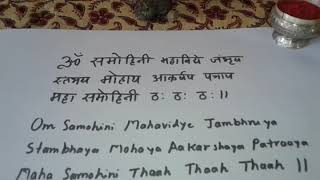 ॐ समोहिनी महाविधे जंभृय
स्तंभय मोहाय आकर्षय पत्राय
महा समोहिनी ठः ठः ठः।।
Om Samohini Mahavidye Jambhruya
Stambhaya Mohaya Aakarshaya Patraaya
Maha Samohini Thaah Thaah Thaah ||